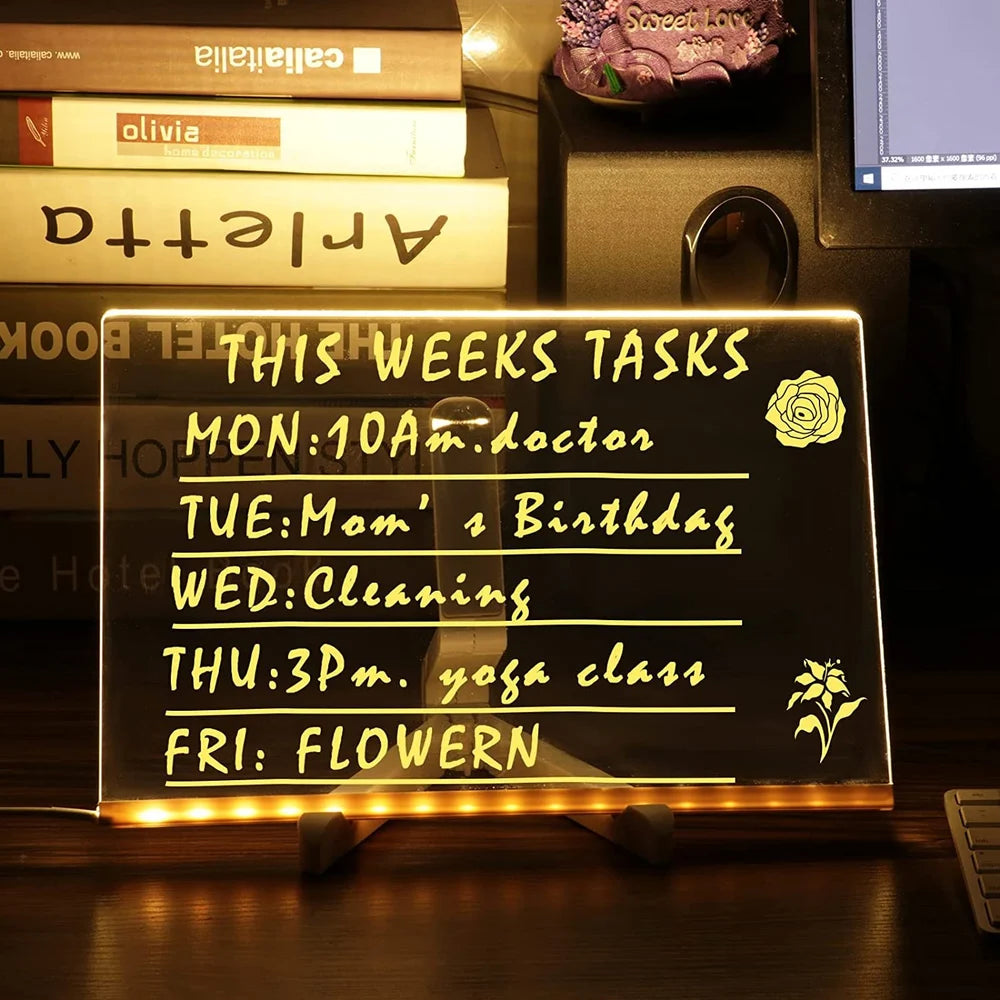 www.caliaitalia
caliaitalia
olivia
home decoration
Arletta
THE HOTEL BOOK
LLY HOPPEN STYL
e Hotel Book
Sweet Love
37.32% 1600 像素 x 1600 像素 (96 ppi)
THIS WEEKS TASKS
MON:10Am.doctor
TUE:Mom's Birthdag
WED:Cleaning
THU:3Pm. yoga class
FRI: FLOWERN